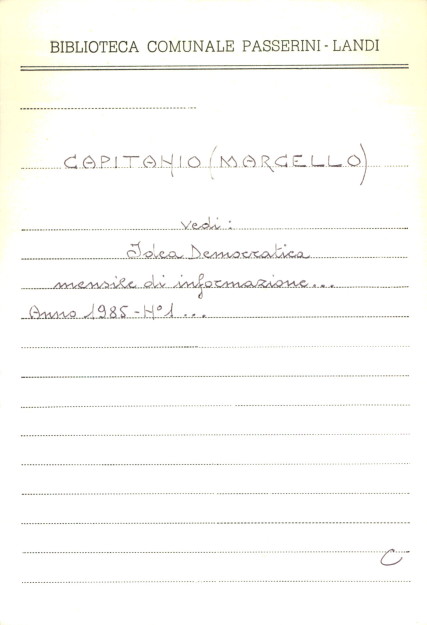 BIBLIOTECA COMUNALE PASSERINI - LANDI
CAPITANIO (MARCELLO)
vedi:
Idea Democratica
mensile di informazione...
Anno 1985 - N°1 ...
C